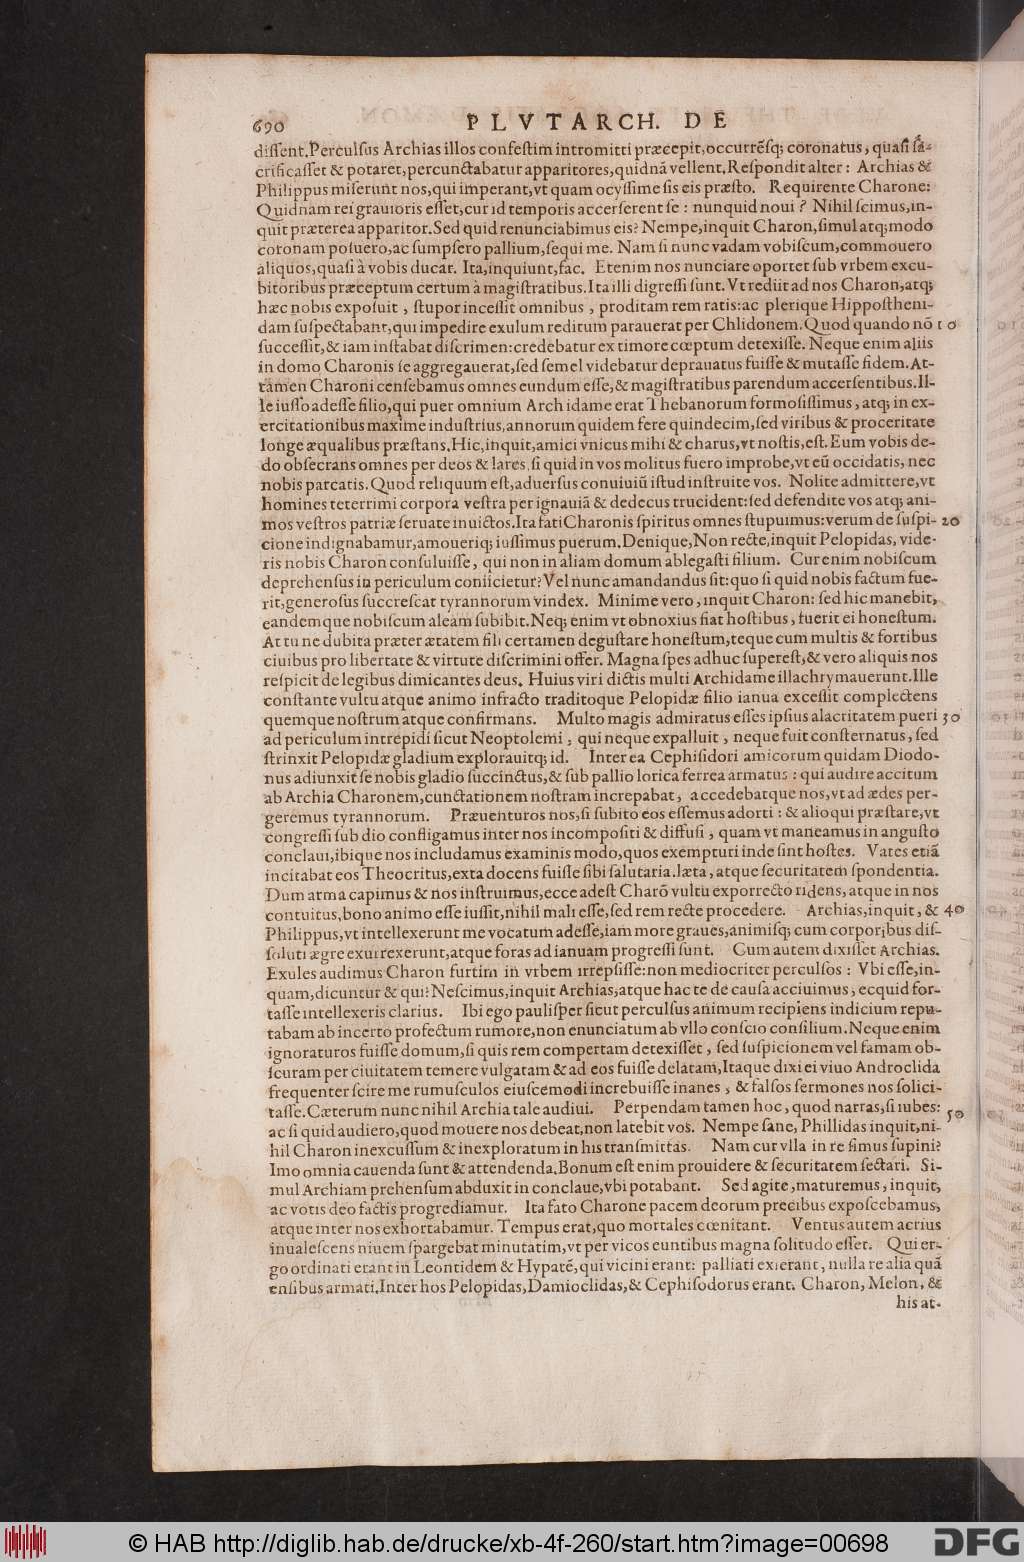 690 PLVTARCH. DE
diſſent.Perculſus Archias illos confeſtim intromitti præcepit,occurrẽſq; coronatus, quaſi ſa-
crificaſſet & potaret,percunctabatur apparitores,quidnã vellent.Reſpondit alter: Archias &
Philippus miſerunt nos,qui imperant,vt quam ocyſſime ſis eis præſto. Requirente Charone:
Quidnam rei grauioris eſſet,cur id temporis accerſerent ſe: nunquid noui? Nihil ſcimus,in-
quit præterea apparitor.Sed quid renunciabimus eis? Nempe,inquit Charon,ſimul atq;modo
coronam poſuero,ac ſumpſero pallium,ſequi me. Nam ſi nunc vadam vobiſcum,commouero
aliquos,quaſi à vobis ducar. Ita,inquiunt,fac. Etenim nos nunciare oportet ſub vrbem excu-
bitoribus præceptum certum à magiſtratibus.Ita illi digreſſi ſunt. Vt rediit ad nos Charon,atq;
hæc nobis expoſuit, ſtupor inceſſit omnibus, proditam rem ratis:ac plerique Hippoſtheni-
dam ſuſpectabant,qui impedire exulum reditum parauerat per Chlidonem.Quod quando nõ 10
ſucceſſit,& iam inſtabat diſcrimen:credebatur ex timore cœptum detexiſſe. Neque enim aliis
in domo Charonis ſe aggregauerat,ſed ſemel videbatur deprauatus fuiſſe & mutaſſe fidem.At-
tamen Charoni cenſebamus omnes eundum eſſe,& magiſtratibus parendum accerſentibus.Il-
le iuſſo adeſſe filio,qui puer omnium Archidame erat Thebanorum formoſiſſimus, atq; in ex-
ercitationibus maxime induſtrius,annorum quidem fere quindecim,ſed viribus & proceritate
longe æqualibus præſtans.Hic,inquit,amici vnicus mihi & charus,vt noſtis,eſt.Eum vobis de-
do obſecrans omnes per deos & lares,ſi quid in vos molitus fuero improbe,vt eũ occidatis, nec
nobis parcatis.Quod reliquum eſt,aduerſus conuiuiũ iſtud inſtruite vos. Nolite admittere,vt
homines teterrimi corpora veſtra per ignauiã & dedecus trucident:ſed defendite vos atq; ani-
mos veſtros patriæ ſeruate inuictos.Ita fati Charonis ſpiritus omnes ſtupuimus:verum de ſuſpi- 20
cione indignabamur,amoueriq; iuſſimus puerum.Denique,Non recte,inquit Pelopidas, vide-
ris nobis Charon conſuluiſſe, qui non in aliam domum ablegaſti filium. Cur enim nobiſcum
deprehenſus in periculum coniicietur?Vel nunc amandandus ſit:quo ſi quid nobis factum fue-
rit,generoſus ſuccreſcat tyrannorum vindex. Minime vero,inquit Charon: ſed hic manebit,
eandemque nobiſcum aleam ſubibit.Neq; enim vt obnoxius fiat hoſtibus, fuerit ei honeſtum.
At tu ne dubita præter ætatem fili certamen deguſtare honeſtum,teque cum multis & fortibus
ciuibus pro libertate & virtute diſcrimini offer. Magna ſpes adhuc ſupereſt,& vero aliquis nos
reſpicit de legibus dimicantes deus. Huius viri dictis multi Archidame illachrymauerunt.Ille
conſtante vultu atque animo infracto traditoque Pelopidæ filio ianua exceſſit complectens
quemque noſtrum atque confirmans. Multo magis admiratus eſſes ipſius alacritatem pueri 30
ad periculum intrepidi ſicut Neoptolemi, qui neque expalluit, neque fuit conſternatus, ſed
ſtrinxit Pelopidæ gladium explorauitq; id. Interea Cephiſidori amicorum quidam Diodo-
nus adiunxit ſe nobis gladio ſuccinctus,& ſub pallio lorica ferrea armatus: qui audire accitum
ab Archia Charonem,cunctationem noſtram increpabat, accedebatque nos,vt ad ædes per-
geremus tyrannorum. Præuenturos nos,ſi ſubito eos eſſemus adorti: & alioqui præſtare,vt
congreſſi ſub dio confligamus inter nos incompoſiti & diffuſi, quam vt maneamus in anguſto
conclaui,ibique nos includamus examinis modo,quos exempturi inde ſint hoſtes. Vates etiã
incitabat eos Theocritus,exta docens fuiſſe ſibi ſalutaria.læta, atque ſecuritatem ſpondentia.
Dum arma capimus & nos inſtruimus,ecce adeſt Charõ vultu exporrecto ridens, atque in nos
contuitus,bono animo eſſe iuſſit,nihil mali eſſe,ſed rem recte procedere. Archias,inquit, & 40
Philippus,vt intellexerunt me vocatum adeſſe,iam more graues,animiſq; cum corporibus diſ-
ſoluti ægre exurrexerunt,atque foras ad ianuam progreſſi ſunt. Cum autem dixiſſet Archias.
Exules audimus Charon furtim in vrbem irrepſiſſe:non mediocriter perculſos: Vbi eſſe,in-
quam,dicuntur & qui? Neſcimus,inquit Archias,atque hac te de cauſa acciuimus, ecquid for-
taſſe intellexeris clarius. Ibi ego pauliſper ſicut perculſus animum recipiens indicium repu-
tabam ab incerto profectum rumore,non enunciatum ab vllo conſcio conſilium.Neque enim
ignoraturos fuiſſe domum,ſi quis rem compertam detexiſſet, ſed ſuſpicionem vel famam ob-
ſcuram per ciuitatem temere vulgatam & ad eos fuiſſe delatam,Itaque dixi ei viuo Androclida
frequenter ſcire me rumuſculos eiuſcemodi increbuiſſe inanes, & falſos ſermones nos ſolici-
taſſe.Cæterum nunc nihil Archia tale audiui. Perpendam tamen hoc, quod narras,ſi iubes: 50
ac ſi quid audiero,quod mouere nos debeat,non latebit vos. Nempe ſane, Phillidas inquit,ni-
hil Charon inexcuſſum & inexploratum in his tranſmittas. Nam cur vlla in re ſimus ſupini?
Imo omnia cauenda ſunt & attendenda.Bonum eſt enim prouidere & ſecuritatem ſectari. Si-
mul Archiam prehenſum abduxit in conclaue,vbi potabant. Sed agite,maturemus, inquit,
ac votis deo factis progrediamur. Ita fato Charone pacem deorum precibus expoſcebamus,
atque inter nos exhortabamur. Tempus erat,quo mortales cœnitant. Ventus autem acrius
inualeſcens niuem ſpargebat minutatim,vt per vicos euntibus magna ſolitudo eſſet. Qui er-
go ordinati erant in Leontidem & Hypatẽ,qui vicini erant: palliati exierant, nulla re alia quã
enſibus armati.Inter hos Pelopidas,Damioclidas,& Cephiſodorus erant. Charon, Melon, &
his at-
© HAB http://diglib.hab.de/drucke/xb-4f-260/start.htm?image=00698
DFG